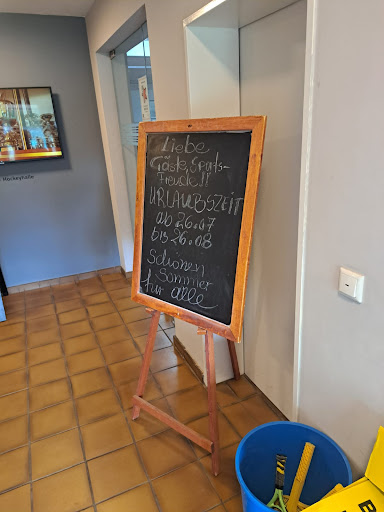 Hockeyhalle
Liebe
Gäste, Sports-
freude!!
URLAUBSZEIT
ab 26.07
bis 26.08
Schönen
Sommer
für alle